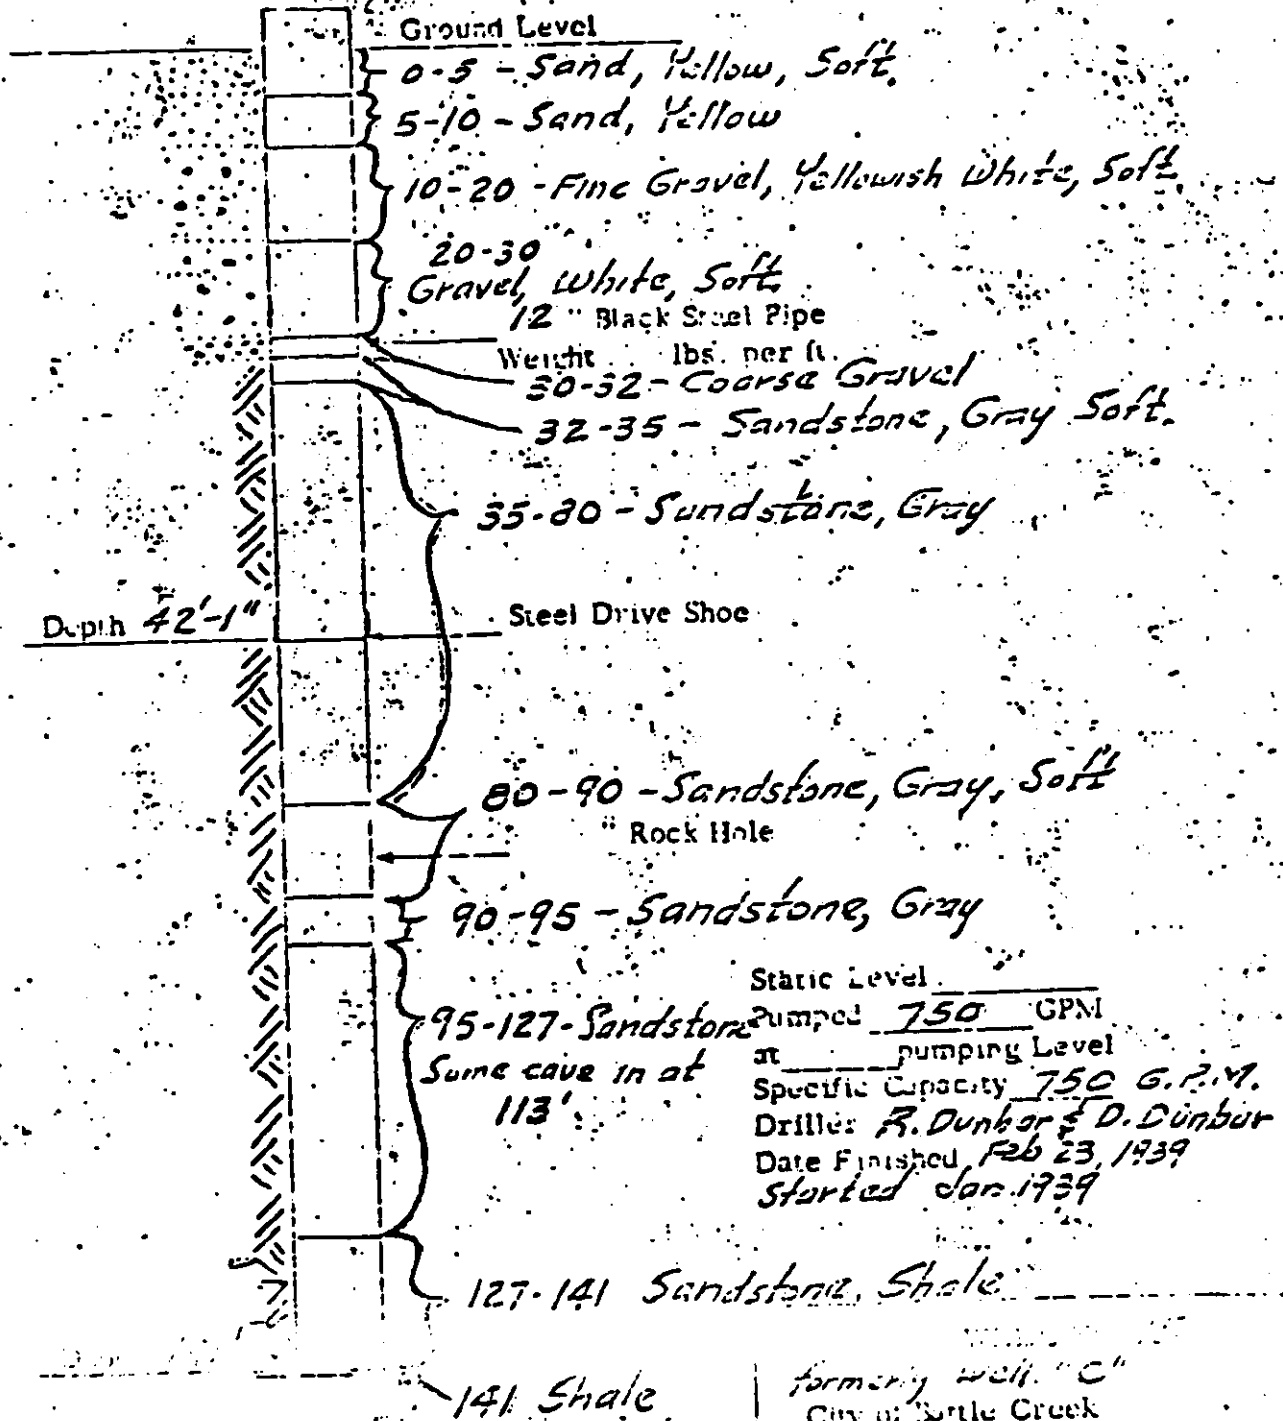 Ground Level
0-5 - Sand, Yellow, Soft.
5-10 - Sand, Yellow
10-20 - Fine Gravel, Yellowish White, Soft
20-30
Gravel, White, Soft
12 " Black Steel Pipe
Weight lbs. per ft.
30-32 - Coarse Gravel
32-35 - Sandstone, Gray Soft.
35-80 - Sandstone, Gray
Depth 42'-1"
Steel Drive Shoe
80-90 - Sandstone, Gray, Soft
" Rock Hole
90-95 - Sandstone, Gray
95-127 - Sandstone
Some cave in at
113'
Static Level
Pumped 750 GPM
at pumping Level
Specific Capacity 750 G.P.M.
Driller R. Dunbar & D. Dunbar
Date Finished Feb 23, 1939
Started Jan. 1939
127-141 Sandstone, Shale
141 Shale
formerly well "C"
City of Battle Creek